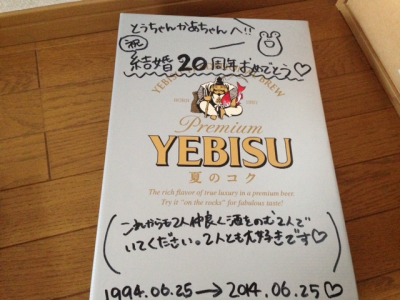 とうちゃんかあちゃんへ!!
祝
結婚20周年おめでとう♡
YEBISU
BREW
Premium
YEBISU
夏のコク
The rich flavor of true luxury in a premium beer.
Try it "on the rocks" for fabulous taste!
(これからも2人仲良く酒をのむ2人で
いてください。2人とも大好きです♡)
1994.06.25→2014.06.25♡